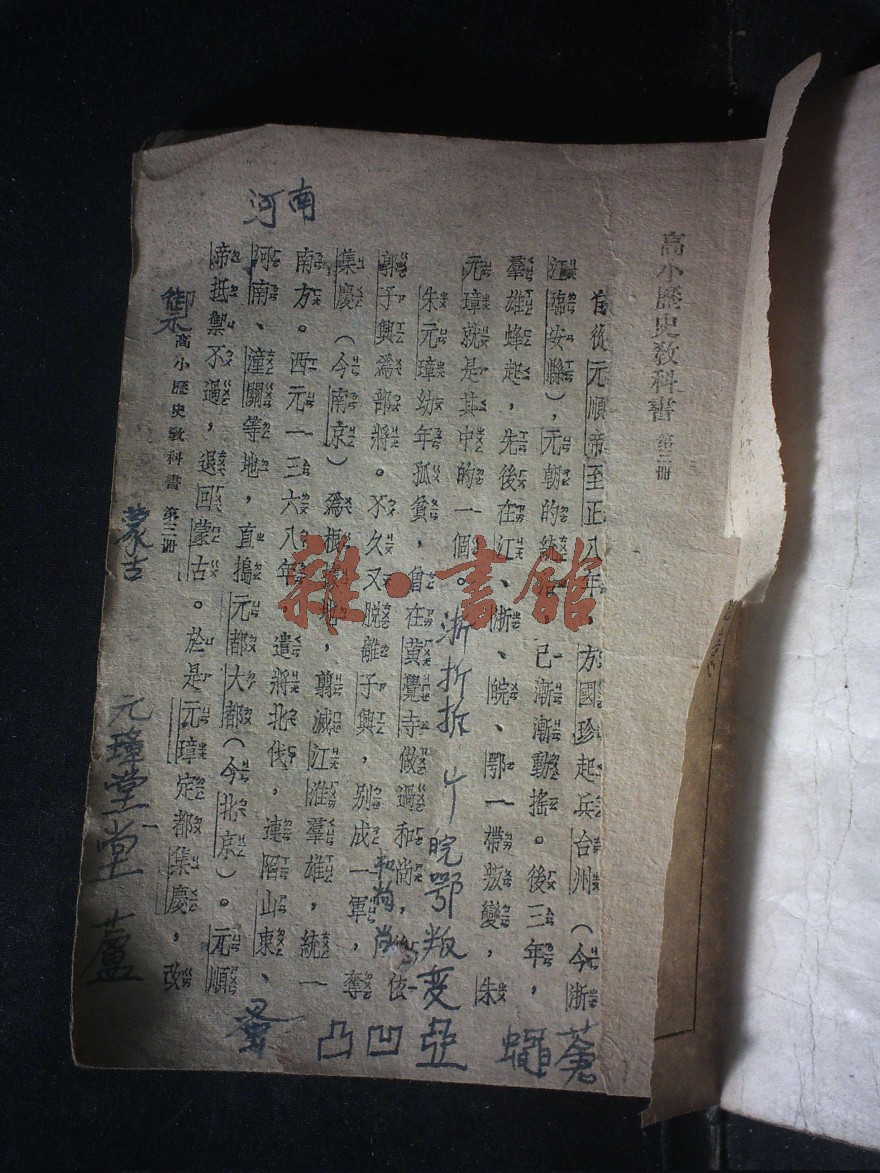 高小歷史教科書 第三冊
後元順帝至正八年，方國珍起兵台州（今浙
江臨安縣），元朝的統 已漸漸動搖。後三年，
羣雄蜂起，先後在江、浙、皖、鄂一帶叛變，朱
元璋就是其中的一個。
朱元璋幼年孤貧，曾在黃覺寺做過和尚，依
郭子興爲部將。不久又脫離子興，别成一軍，奪
集慶（今南京）爲根 地，翦滅江淮羣雄，統一
南方。西元一三六八年，遣將北伐，連陷山東、
河南、潼關等地，直搗元都大都（今北京）。元順
帝抵禦不過，退回蒙古。於是元璋定都集慶，改
高小歷史教科書 第三冊
河南
浙折拆
皖鄂叛变
和尚尚
禦
蒙古
元璋堂堂蘆
蒼蠅
亞凹凸
雜·書館